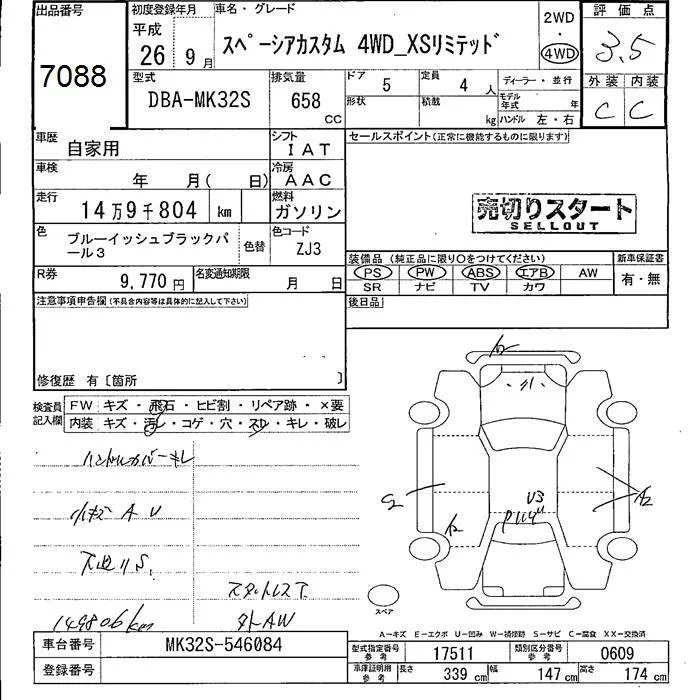 出品番号
7088
初度登録年月
平成
26年 9月
車名・グレード
スペーシアカスタム 4WD_XSリミテッド
2WD
・
4WD
評価点
3.5
外装 内装
C C
型式
DBA-MK32S
排気量
658
CC
ドア 5
定員 4人
形状
積載 kg
ディーラー・並行
モデル年式 年
ハンドル 左・右
車歴 自家用
シフト IAT
車検 年 月( 日)
冷房 AAC
走行 14万9千804 km
燃料 ガソリン
色 ブルーイッシュブラックパール3
色替
色コード ZJ3
R券 9,770円
名変通知期限 月 日
セールスポイント(正常に機能するものに限ります)
売切りスタート
SELLOUT
装備品(純正品に限り○をつけてください)
PS PW ABS エアB AW
SR ナビ TV カワ
新車保証書
有・無
後日品
注意事項申告欄(不具合内容等は具体的に記入して下さい)
修復歴 有〔箇所 〕
検査員記入欄
FW キズ・飛石・ヒビ割・リペア跡・×要
内装 キズ・汚レ・コゲ・穴・スレ・キレ・破レ
ハンドルカバーキレ
小キズ A U
下廻りS.
スタットレスT
149806km
外AW
A2
U3
P
スペア
A-キズ E-エクボ U-凹み W-補修跡 S-サビ C-腐食 XX-交換済
車台番号 MK32S-546084
登録番号
型式指定番号 参考 17511
類別区分番号 参考 0609
車庫証明用 参考
長さ 339cm 幅 147cm 高さ 174cm